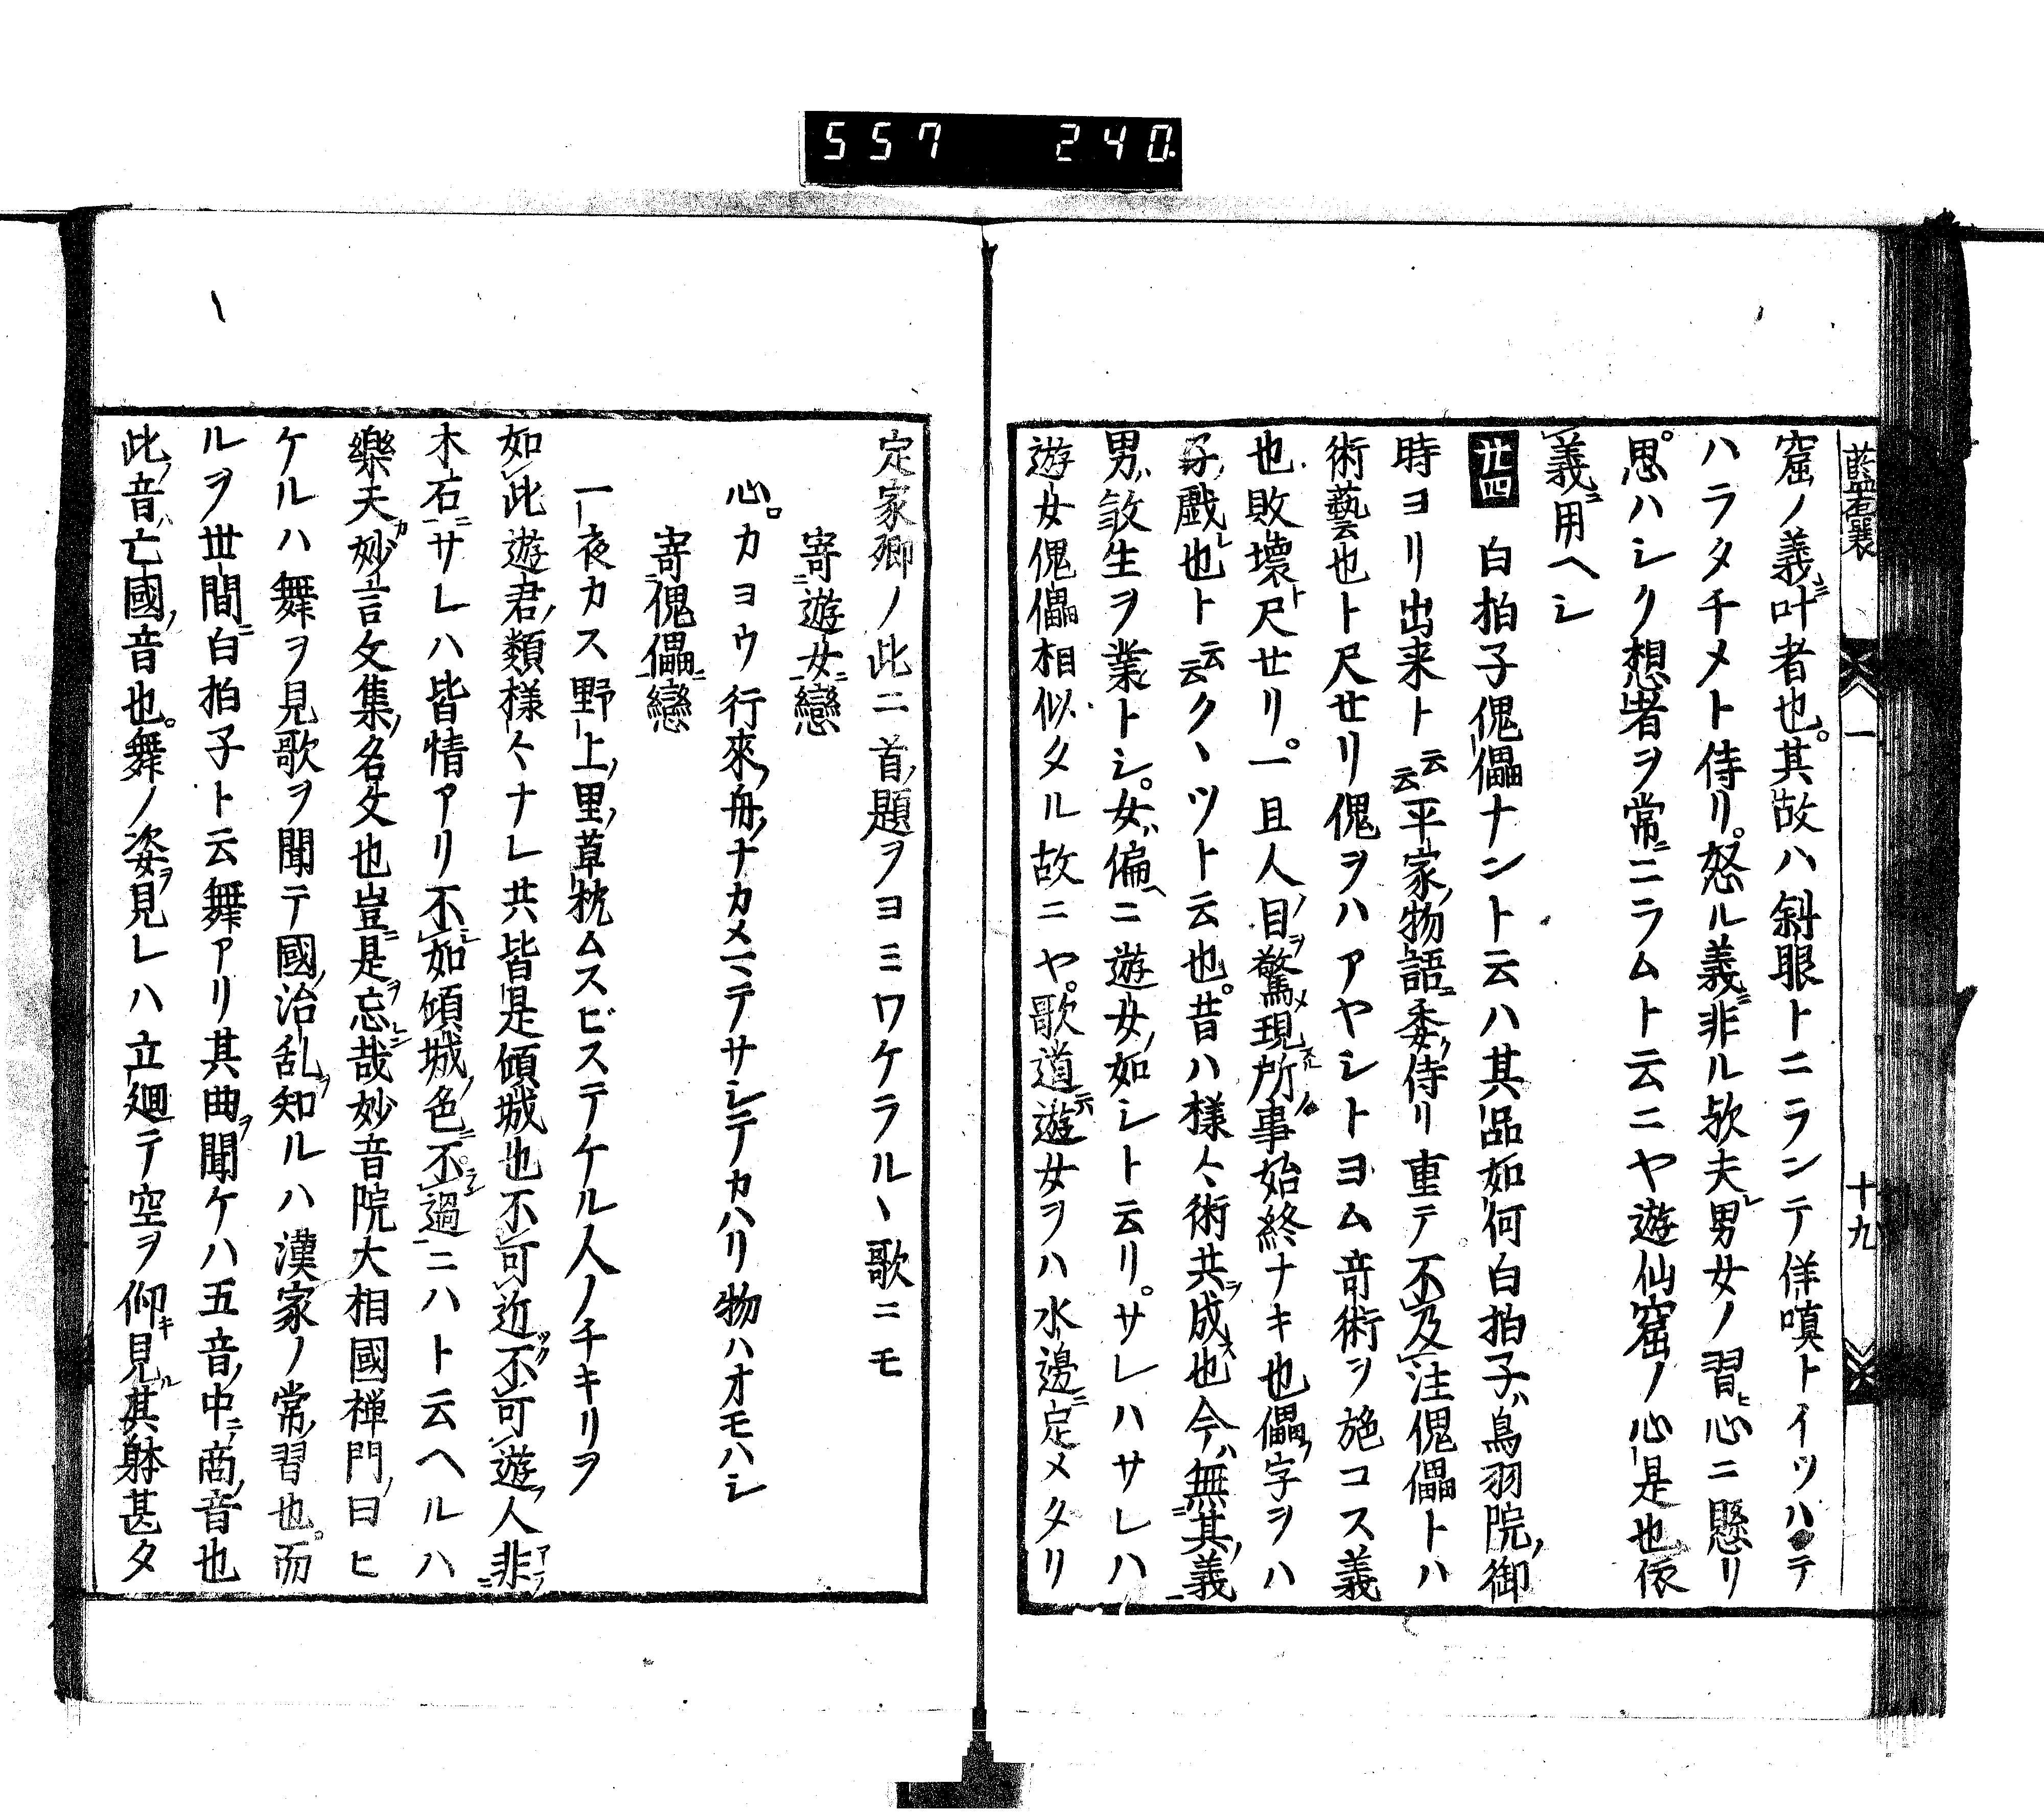 557 240
藍嚢 一 十九
窟ノ義ニ叶者也。其故ハ斜眼トニランテ佯嗔トイツハテ
ハラタチメト侍リ。怒ル義ニ非ル欤夫レ男女ノ習ヒ心ニ懸リ
思ハシク想者ヲ常ニニラムト云ニヤ遊仙窟ノ心是也依
義ニ用ヘシ
廿四 白拍子傀儡ナント云ハ其品如何白拍子ハ鳥羽院ノ御
時ヨリ出来ト云云平家ノ物語ニ委ク侍リ重テ不及注傀儡トハ
術藝也ト尺せリ傀ヲハアヤシトヨム竒術ヲ施コス義
也敗壞ト尺せリ。一旦人ノ目ヲ驚メ現スル所ノ事始終ナキ也儡ノ字ヲハ
子ノ戲レ也ト云云クヽツト云也。昔ハ様々ノ術共ヲ成ス也今ハ無其ノ義
男ハ敦生ヲ業トシ。女ハ偏ヘニ遊女ノ如シト云リ。サレハサレハ
遊女傀儡相似タル故ニヤ。歌道ニテ遊女ヲハ水邊ニ定メタリ
定家卿ノ此二首ノ題ヲヨミワケラルヽ歌ニモ
寄遊女戀
心。カヨウ行來ノ舟ノナカメニテサシテカハリ物ハオモハシ
寄傀儡戀
一夜カス野上ノ里ノ草枕ムスビステケル人ノチキリヲ
如此遊君ノ類様々ナレ共皆是傾城也不可近ツク不可遊フ人非
木石ニサレハ皆情アリ不如傾城ノ色ニ不過ニハト云ヘルハ
樂天カ妙言文集ノ名文也豈ニ是ヲ忘レン哉妙音院大相國禅門ノ曰ヒ
ケルハ舞ヲ見歌ヲ聞テ國ノ治乱ヲ知ルハ漢家ノ常ノ習也。而
ルヲ世間ニ白拍子ト云舞アリ其曲ヲ聞ケハ五音ノ中ニハ商ノ音也
此ノ音ハ亡國ノ音也。舞ノ姿ヲ見レハ立廻テ空ヲ仰キ見ル其躰甚タ